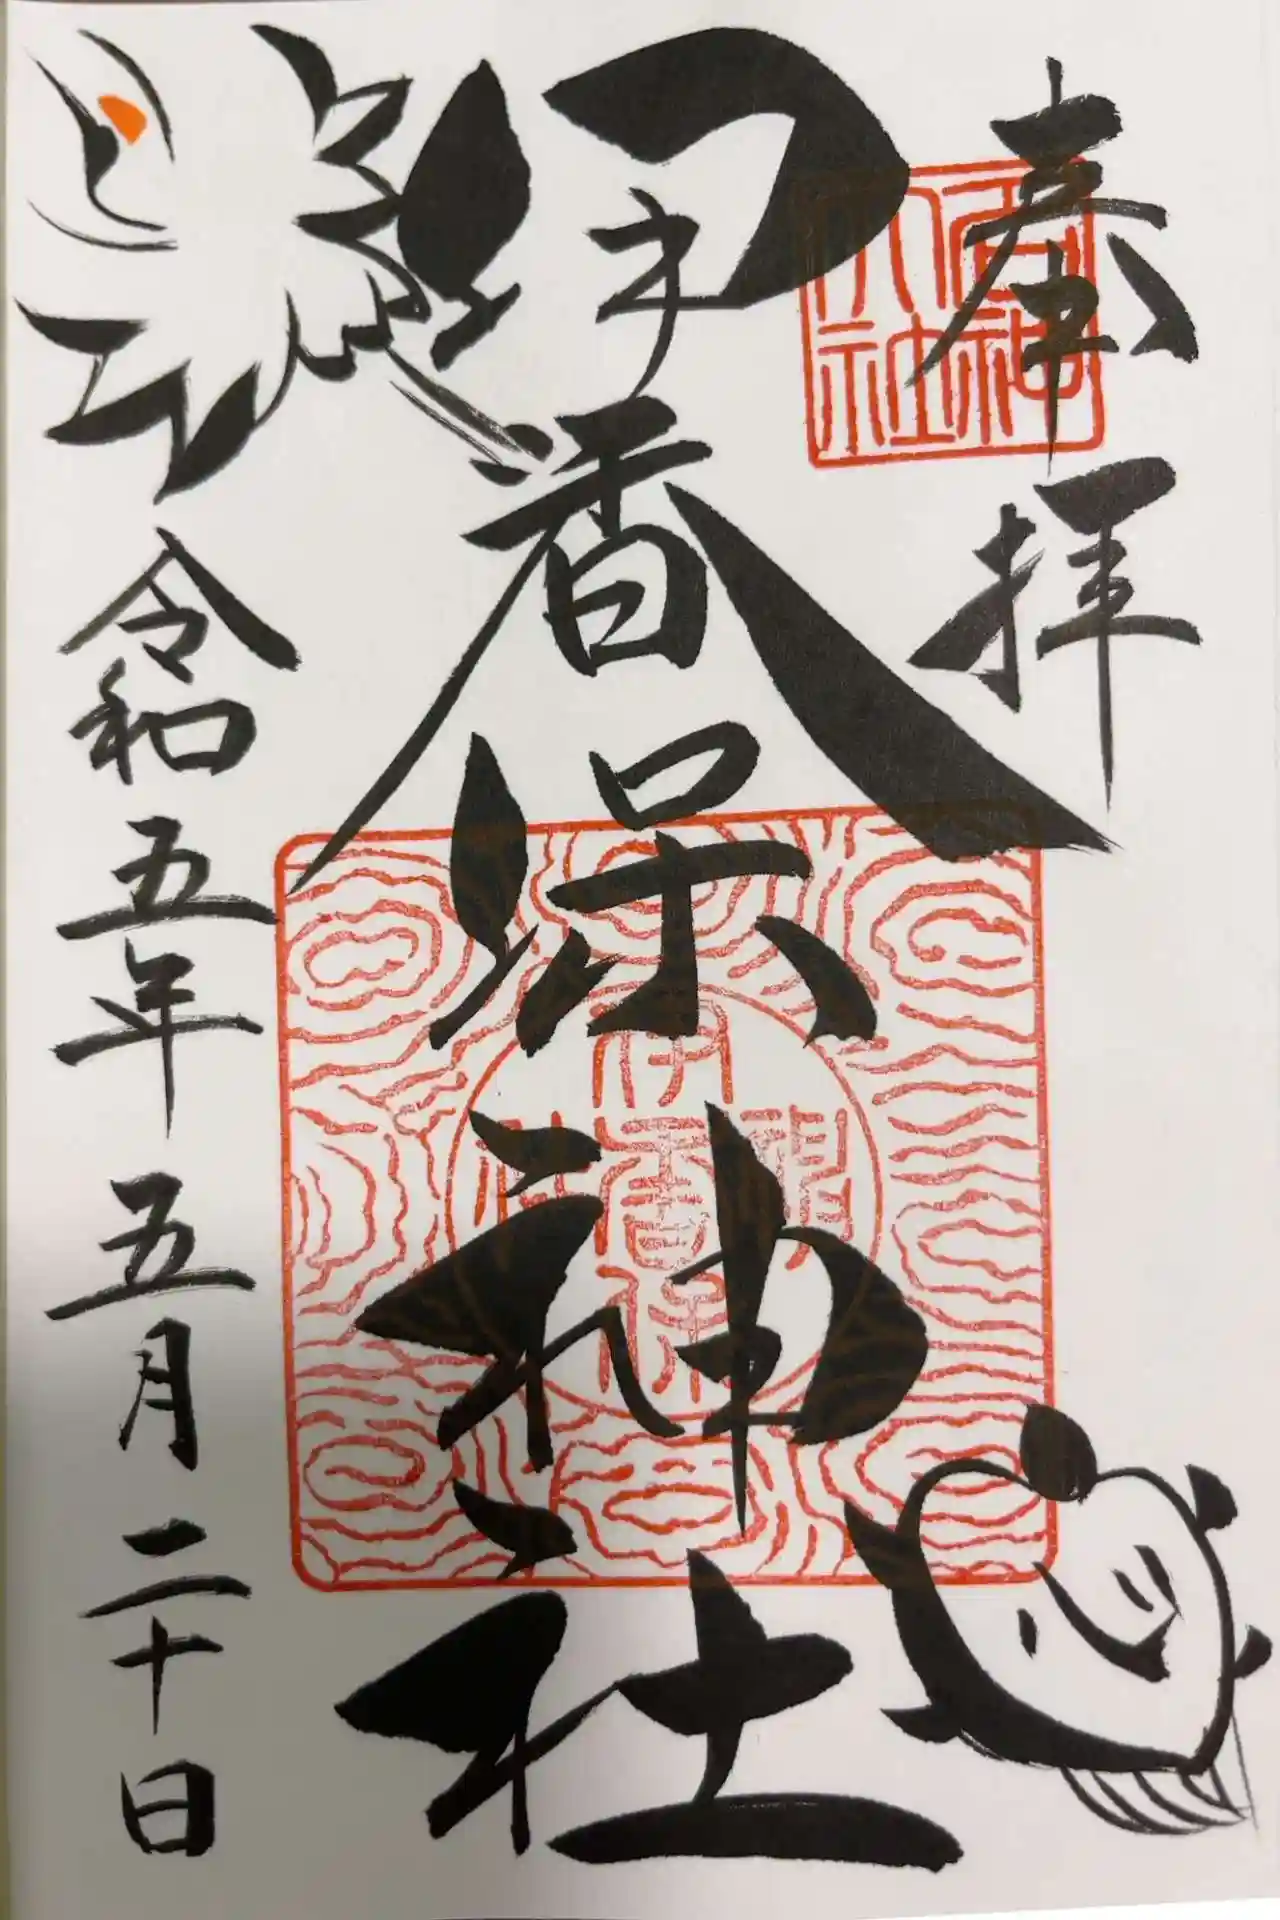 奉拝
伊香保神社
令和五年五月二十日